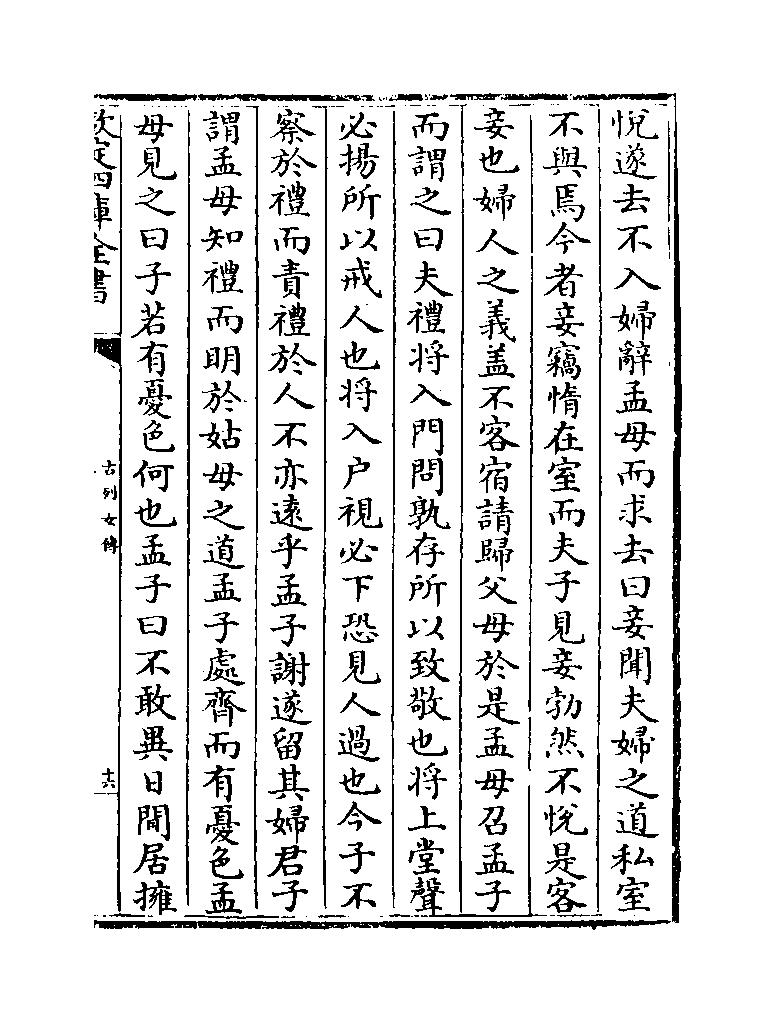 悅遂去不入婦辭孟母而求去曰妾聞夫婦之道私室
不與焉今者妾竊惰在室而夫子見妾勃然不悅是客
妾也婦人之義盖不客宿請歸父母於是孟母召孟子
而謂之曰夫禮將入門問孰存所以致敬也將上堂聲
必揚所以戒人也將入户視必下恐見人過也今子不
察於禮而責禮於人不亦遠乎孟子謝遂留其婦君子
謂孟母知禮而明於姑母之道孟子處齊而有憂色孟
母見之曰子若有憂色何也孟子曰不敢異日閒居擁
欽定四庫全書
古列女傳
十六